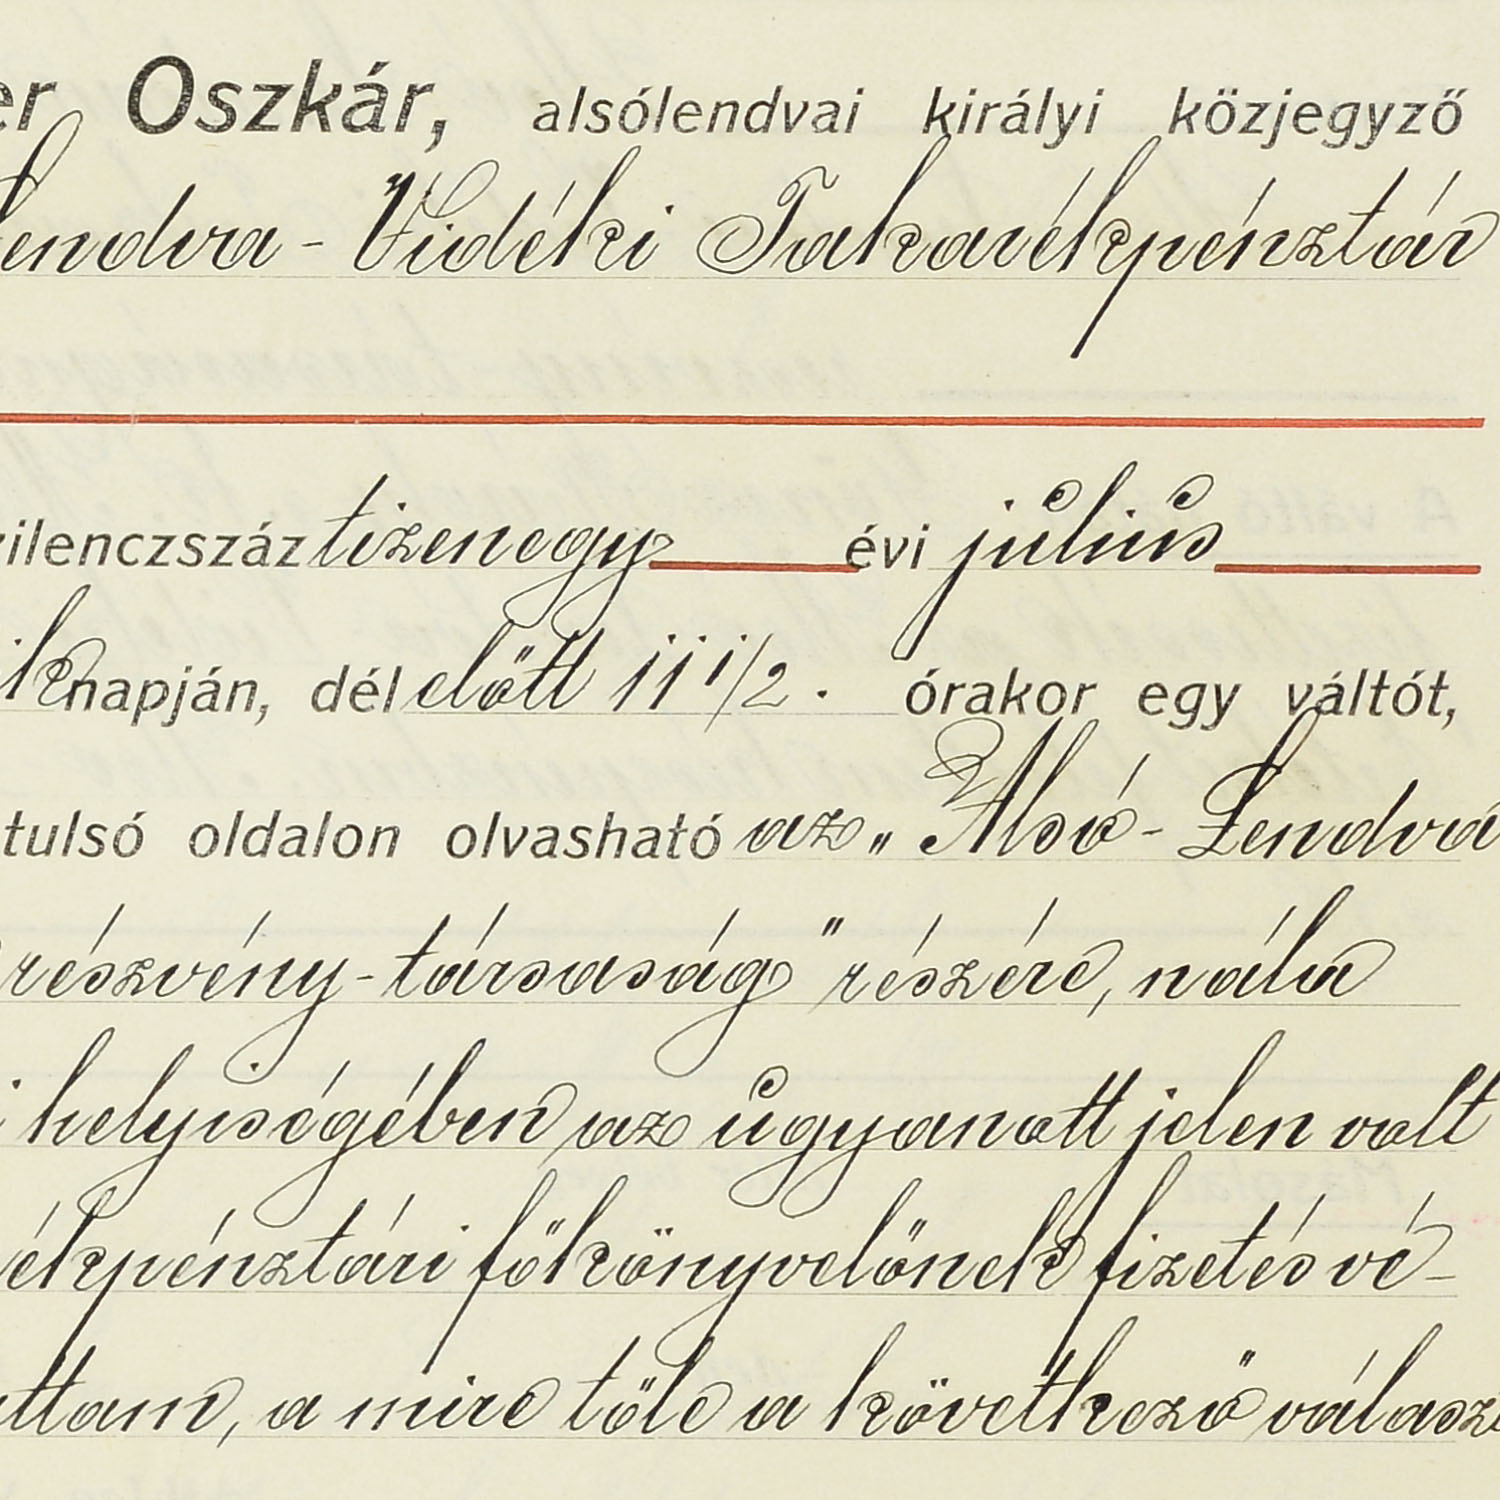 er Oszkár, alsólendvai királyi közjegyző
Lendva - Vidéki Takarékpénztár
zilenczszáz tizenegy évi július
ik napján, dél előtt 11 1/2. órakor egy váltót,
tulsó oldalon olvasható az „Alsó-Lendva
részvény-társaság" részére, nála
i helyiségében az ugyanott jelen volt
ékpénztári főkönyvelőnek fizetés vé-
attam, a mire tőle a következő válasz